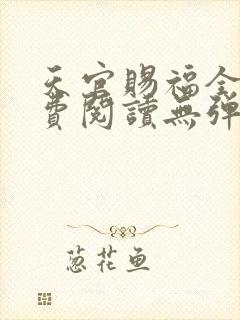 天官賜福全
費閱讀無彈
葱花鱼